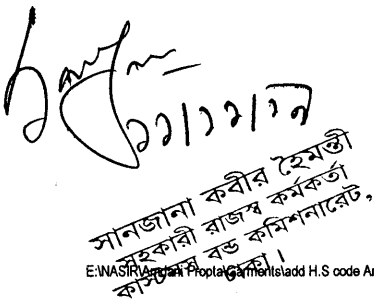 সানজানা কবীর হৈমন্তী
সহকারী রাজস্ব কর্মকর্তা
কাস্টমস বন্ড কমিশনারেট,
ঢাকা।
E:\NASIR\Amdani Propta\Garments\add H.S code